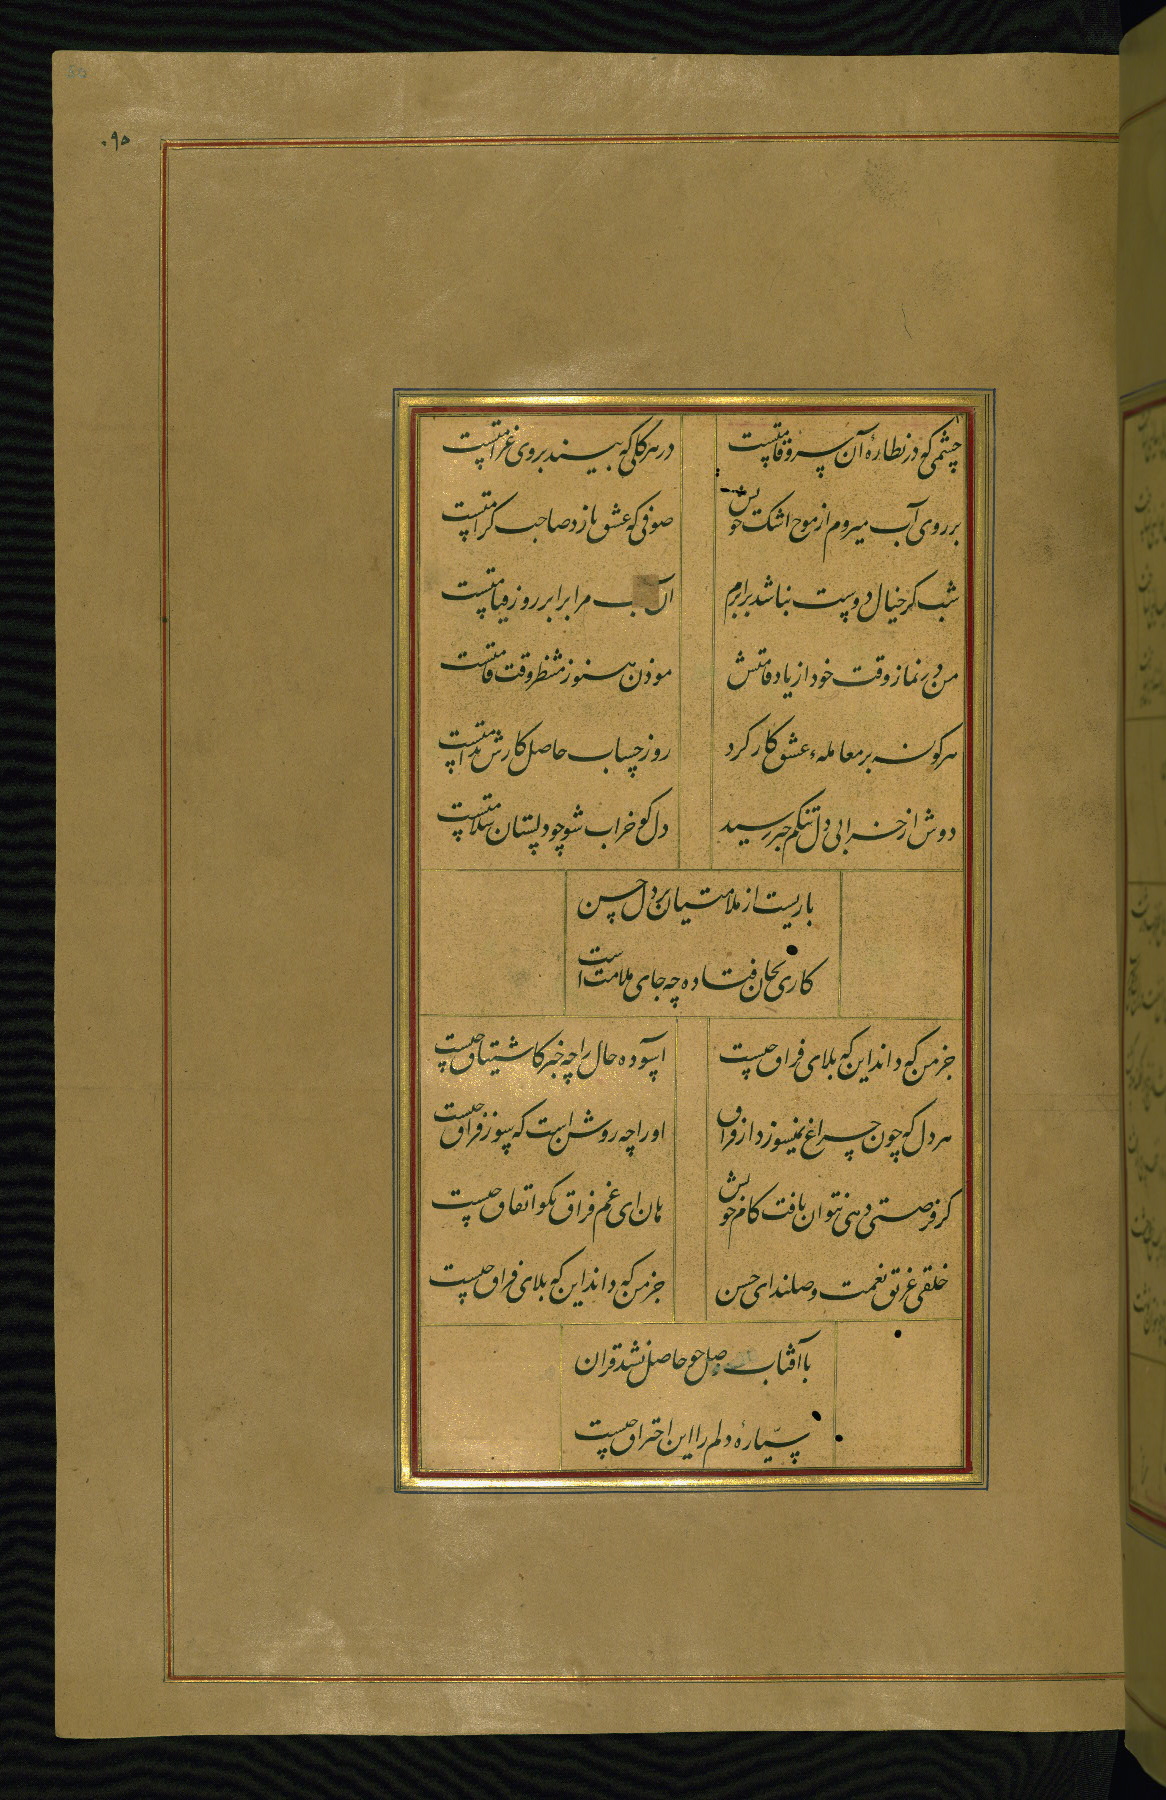 ۰۹۵
چشمی که در نظارهٔ آن سروقامتست
در هر گلی که بیند بروی غرامتست
بر روی آب میروم از موج اشک خویش
صوفی که عشق بازد صاحب کرامتست
شب کر خیال دوست نباشد برابرم
آن مرا برابر روز قیامتست
من در نماز وقت خود از یاد قامتش
موذن هنوز منتظر وقت قامتست
هرکو نه بر معامله عشق کار کرد
روز حساب حاصل کارش ندامتست
دوش از خرابی دل تنکم خبر رسید
دل کو خراب شو چو دلستان سلامتست
باریست از ملامتیان بر دل حسن
کاری بجان فتاده چه جای ملامت است
جز من که داند این که بلای فراق چیست
آسوده حال را چه خبر کاشتیاق چیست
هر دل که چون چراغ نمیسوزد از فراق
او را چه روشن است که سوز فراق چیست
کر فرصتی دهی نتوان یافت کام خویش
هان ای غم فراق بکو اتفاق چیست
خلقی غریق نعمت وصلند ای حسن
جز من که داند این که بلای فراق چیست
با آفتاب وصل چو حاصل نشد قران
سیّارهٔ دلم را این احتراق چیست